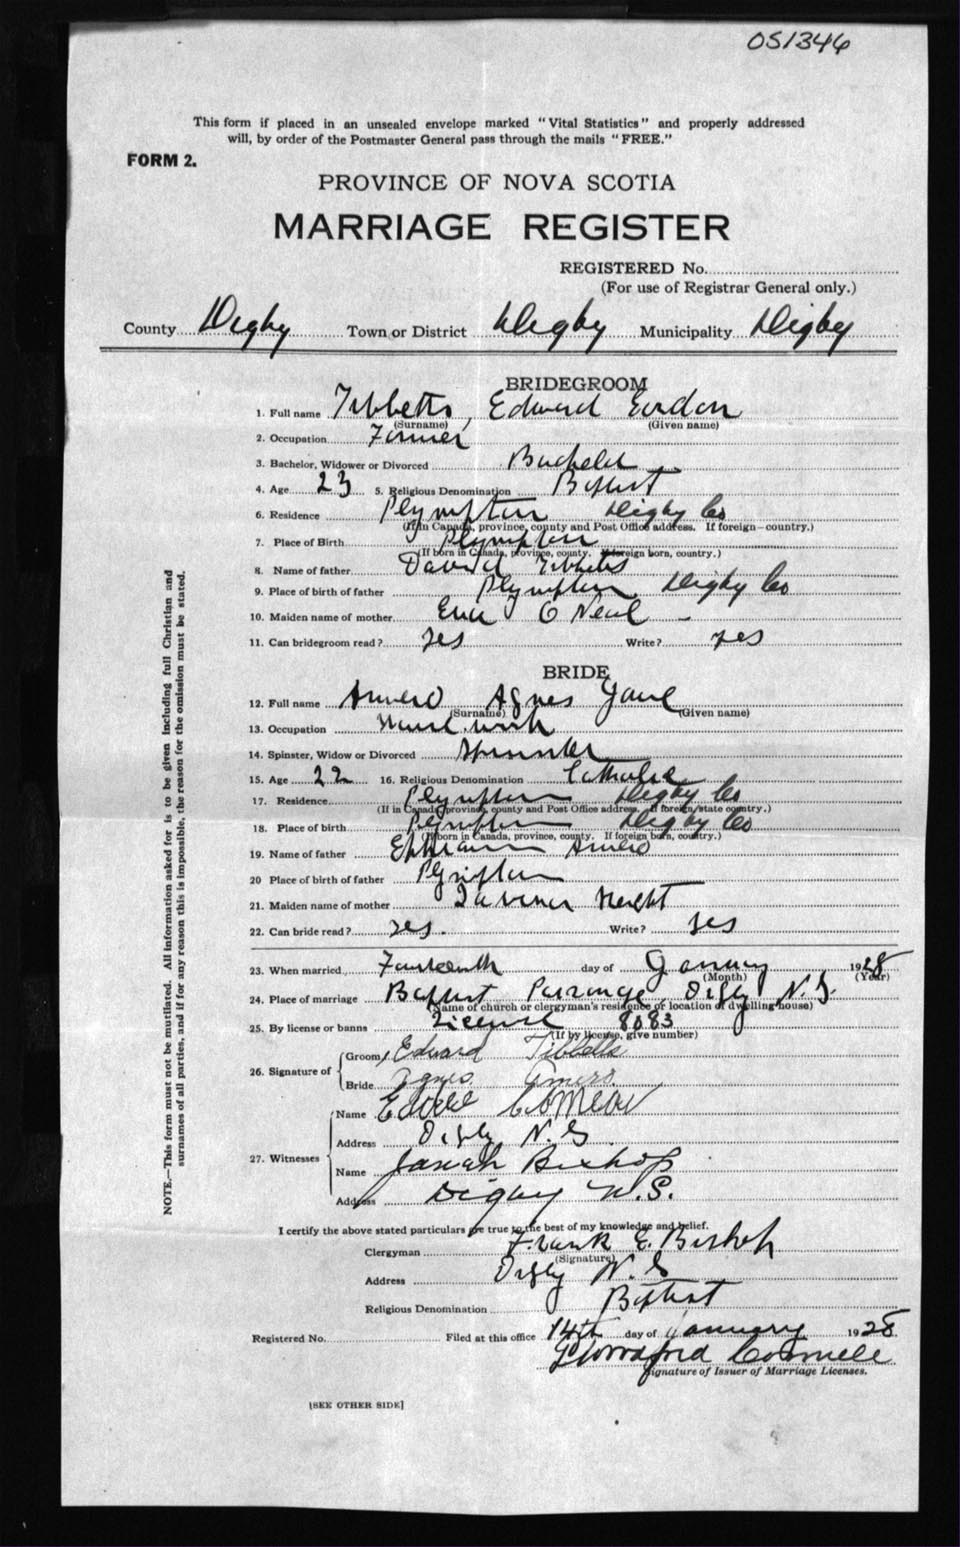 051346
This form if placed in an unsealed envelope marked "Vital Statistics" and properly addressed
will, by order of the Postmaster General pass through the mails "FREE."
FORM 2.
PROVINCE OF NOVA SCOTIA
MARRIAGE REGISTER
REGISTERED No.
(For use of Registrar General only.)
County Digby Town or District Digby Municipality Digby
BRIDEGROOM
1. Full name Tibbetts, Edward Gordon
(Surname) (Given name)
2. Occupation Farmer
3. Bachelor, Widower or Divorced Bachelor
4. Age 23 5. Religious Denomination Baptist
6. Residence Plympton Digby Co
(If in Canada, province, county and Post Office address. If foreign—country.)
7. Place of Birth Plympton
(If born in Canada, province, county. If foreign born, country.)
8. Name of father David Tibbetts
9. Place of birth of father Plympton Digby Co
10. Maiden name of mother O Neal
11. Can bridegroom read? yes Write? yes
BRIDE
12. Full name Amero Agnes Jane
(Surname) (Given name)
13. Occupation House work
14. Spinster, Widow or Divorced Spinster
15. Age 22 16. Religious Denomination Catholic
17. Residence Plympton Digby Co
(If in Canada, province, county and Post Office address. If foreign state country.)
18. Place of birth Plympton Digby Co
(If born in Canada, province, county. If foreign born, country.)
19. Name of father Ephraim Amero
20 Place of birth of father Plympton
21. Maiden name of mother
22. Can bride read? yes. Write? yes
23. When married Fourteenth day of January 1928
(Month) (Year)
24. Place of marriage Baptist Parsonage, Digby N.S.
(Name of church or clergyman's residence or location of dwelling house)
25. By license or banns License 8083
(If by license, give number)
26. Signature of Groom Edward Tibbetts
Bride Agnes Amero
27. Witnesses Name Comeau
Address Digby N.S
Name Bishop
Address Digby N.S.
I certify the above stated particulars are true to the best of my knowledge and belief.
Clergyman Frank E. Bishop
(Signature)
Address Digby N.S
Religious Denomination Baptist
Registered No. Filed at this office 14th day of January 1928
Signature of Issuer of Marriage Licenses.
[SEE OTHER SIDE]
NOTE.—This form must not be mutilated. All information asked for is to be given including full Christian and
surnames of all parties, and if for any reason this is impossible, the reason for the omission must be stated.